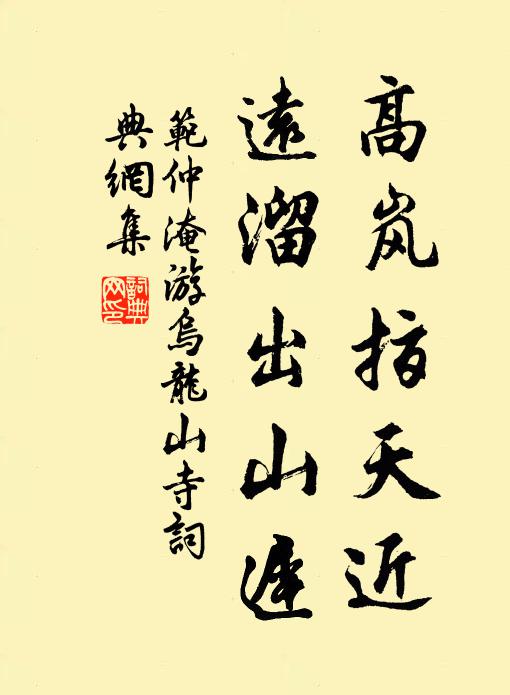 高岚指天近
遠溜出山遲
範仲淹游烏龍山寺詞
典網集
詞典
网印